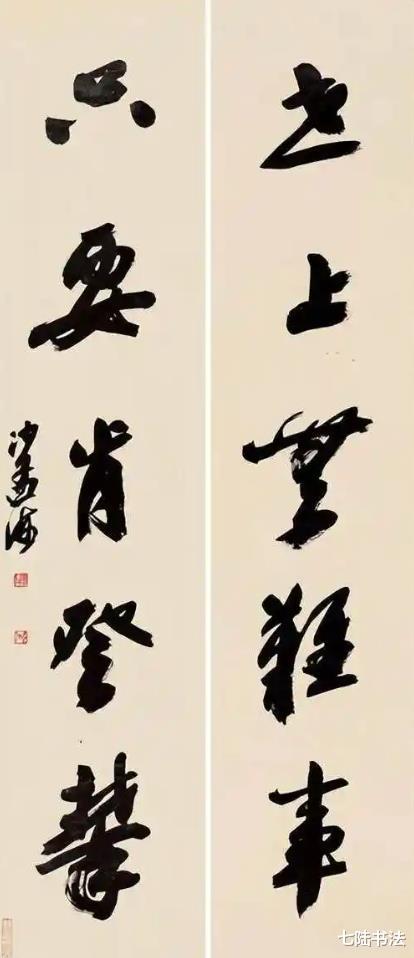 世上無難事
只要肯登攀
沙孟海
七陆书法